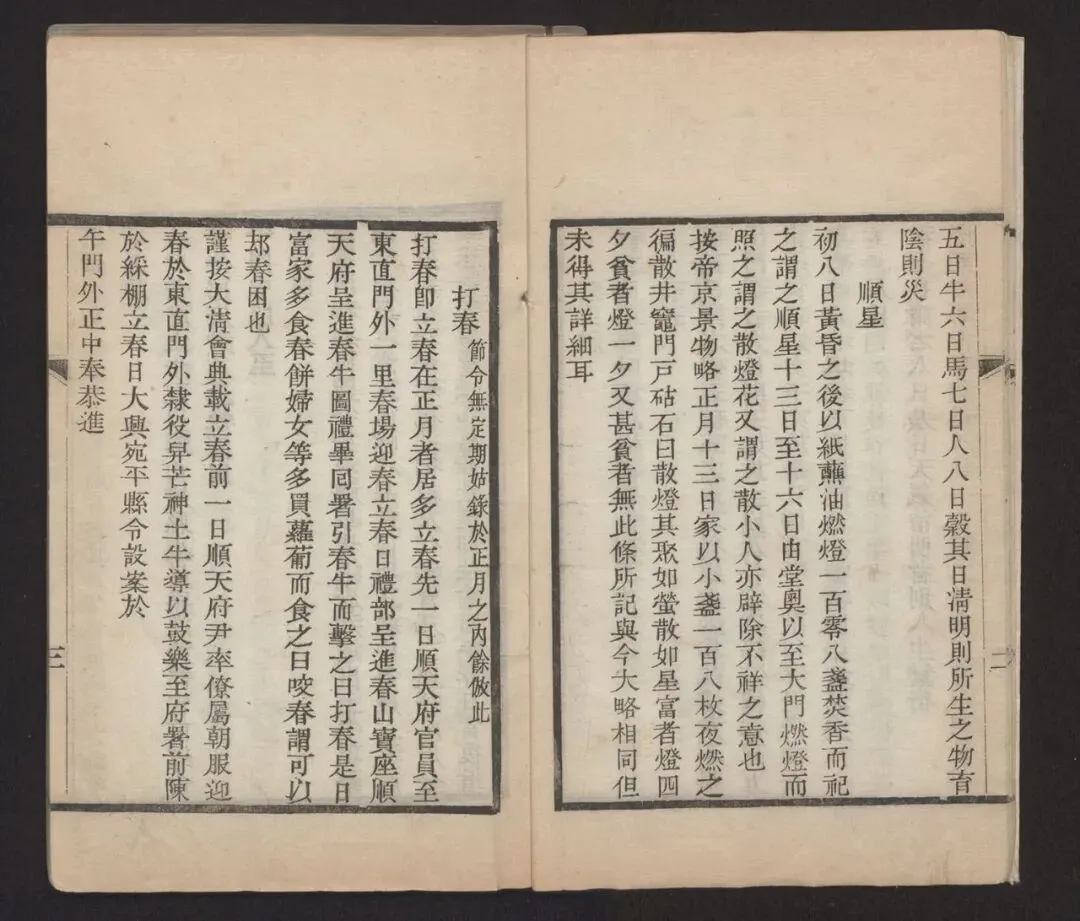 五日牛六日馬七日人八日穀其日淸明則所生之物育
陰則災
順星
初八日黃昏之後以紙蘸油燃燈一百零八盞焚香而祀
之謂之順星十三日至十六日由堂奧以至大門燃燈而
照之謂之散燈花又謂之散小人亦辟除不祥之意也
按帝京景物略正月十三日家以小盞一百八枚夜燃之
徧散井竈門戶砧石曰散燈其聚如螢散如星富者燈四
夕貧者燈一夕又甚貧者無此條所記與今大略相同但
未得其詳細耳
二
打春 節令無定期姑錄於正月之內餘倣此
打春卽立春在正月者居多立春先一日順天府官員至
東直門外一里春場迎春立春日禮部呈進春山寶座順
天府呈進春牛圖禮畢回署引春牛而擊之曰打春是日
富家多食春餅婦女等多買蘿蔔而食之曰咬春謂可以
却春困也
謹按大淸會典載立春前一日順天府尹率僚屬朝服迎
春於東直門外隸役舁芒神土牛導以鼓樂至府署前陳
於綵棚立春日大興宛平縣令設案於
午門外正中奉恭進
三